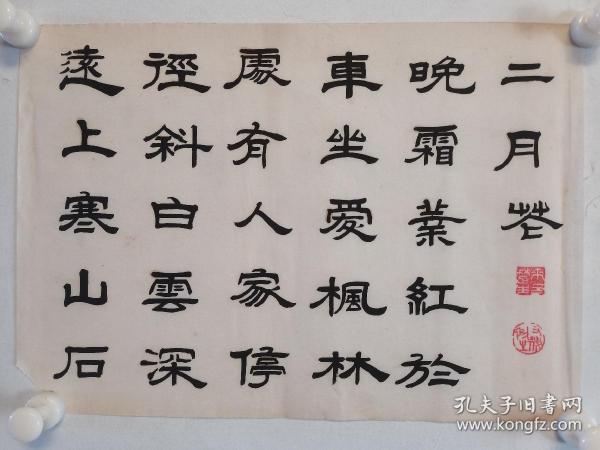 遠上寒山石
徑斜白雲深
處有人家停
車坐愛楓林
晚霜葉紅於
二月花
孔夫子旧书网
www.kongfz.com